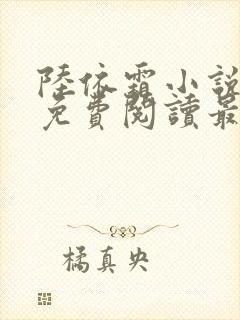 陸依霜小說
免費閱讀最
橘真央